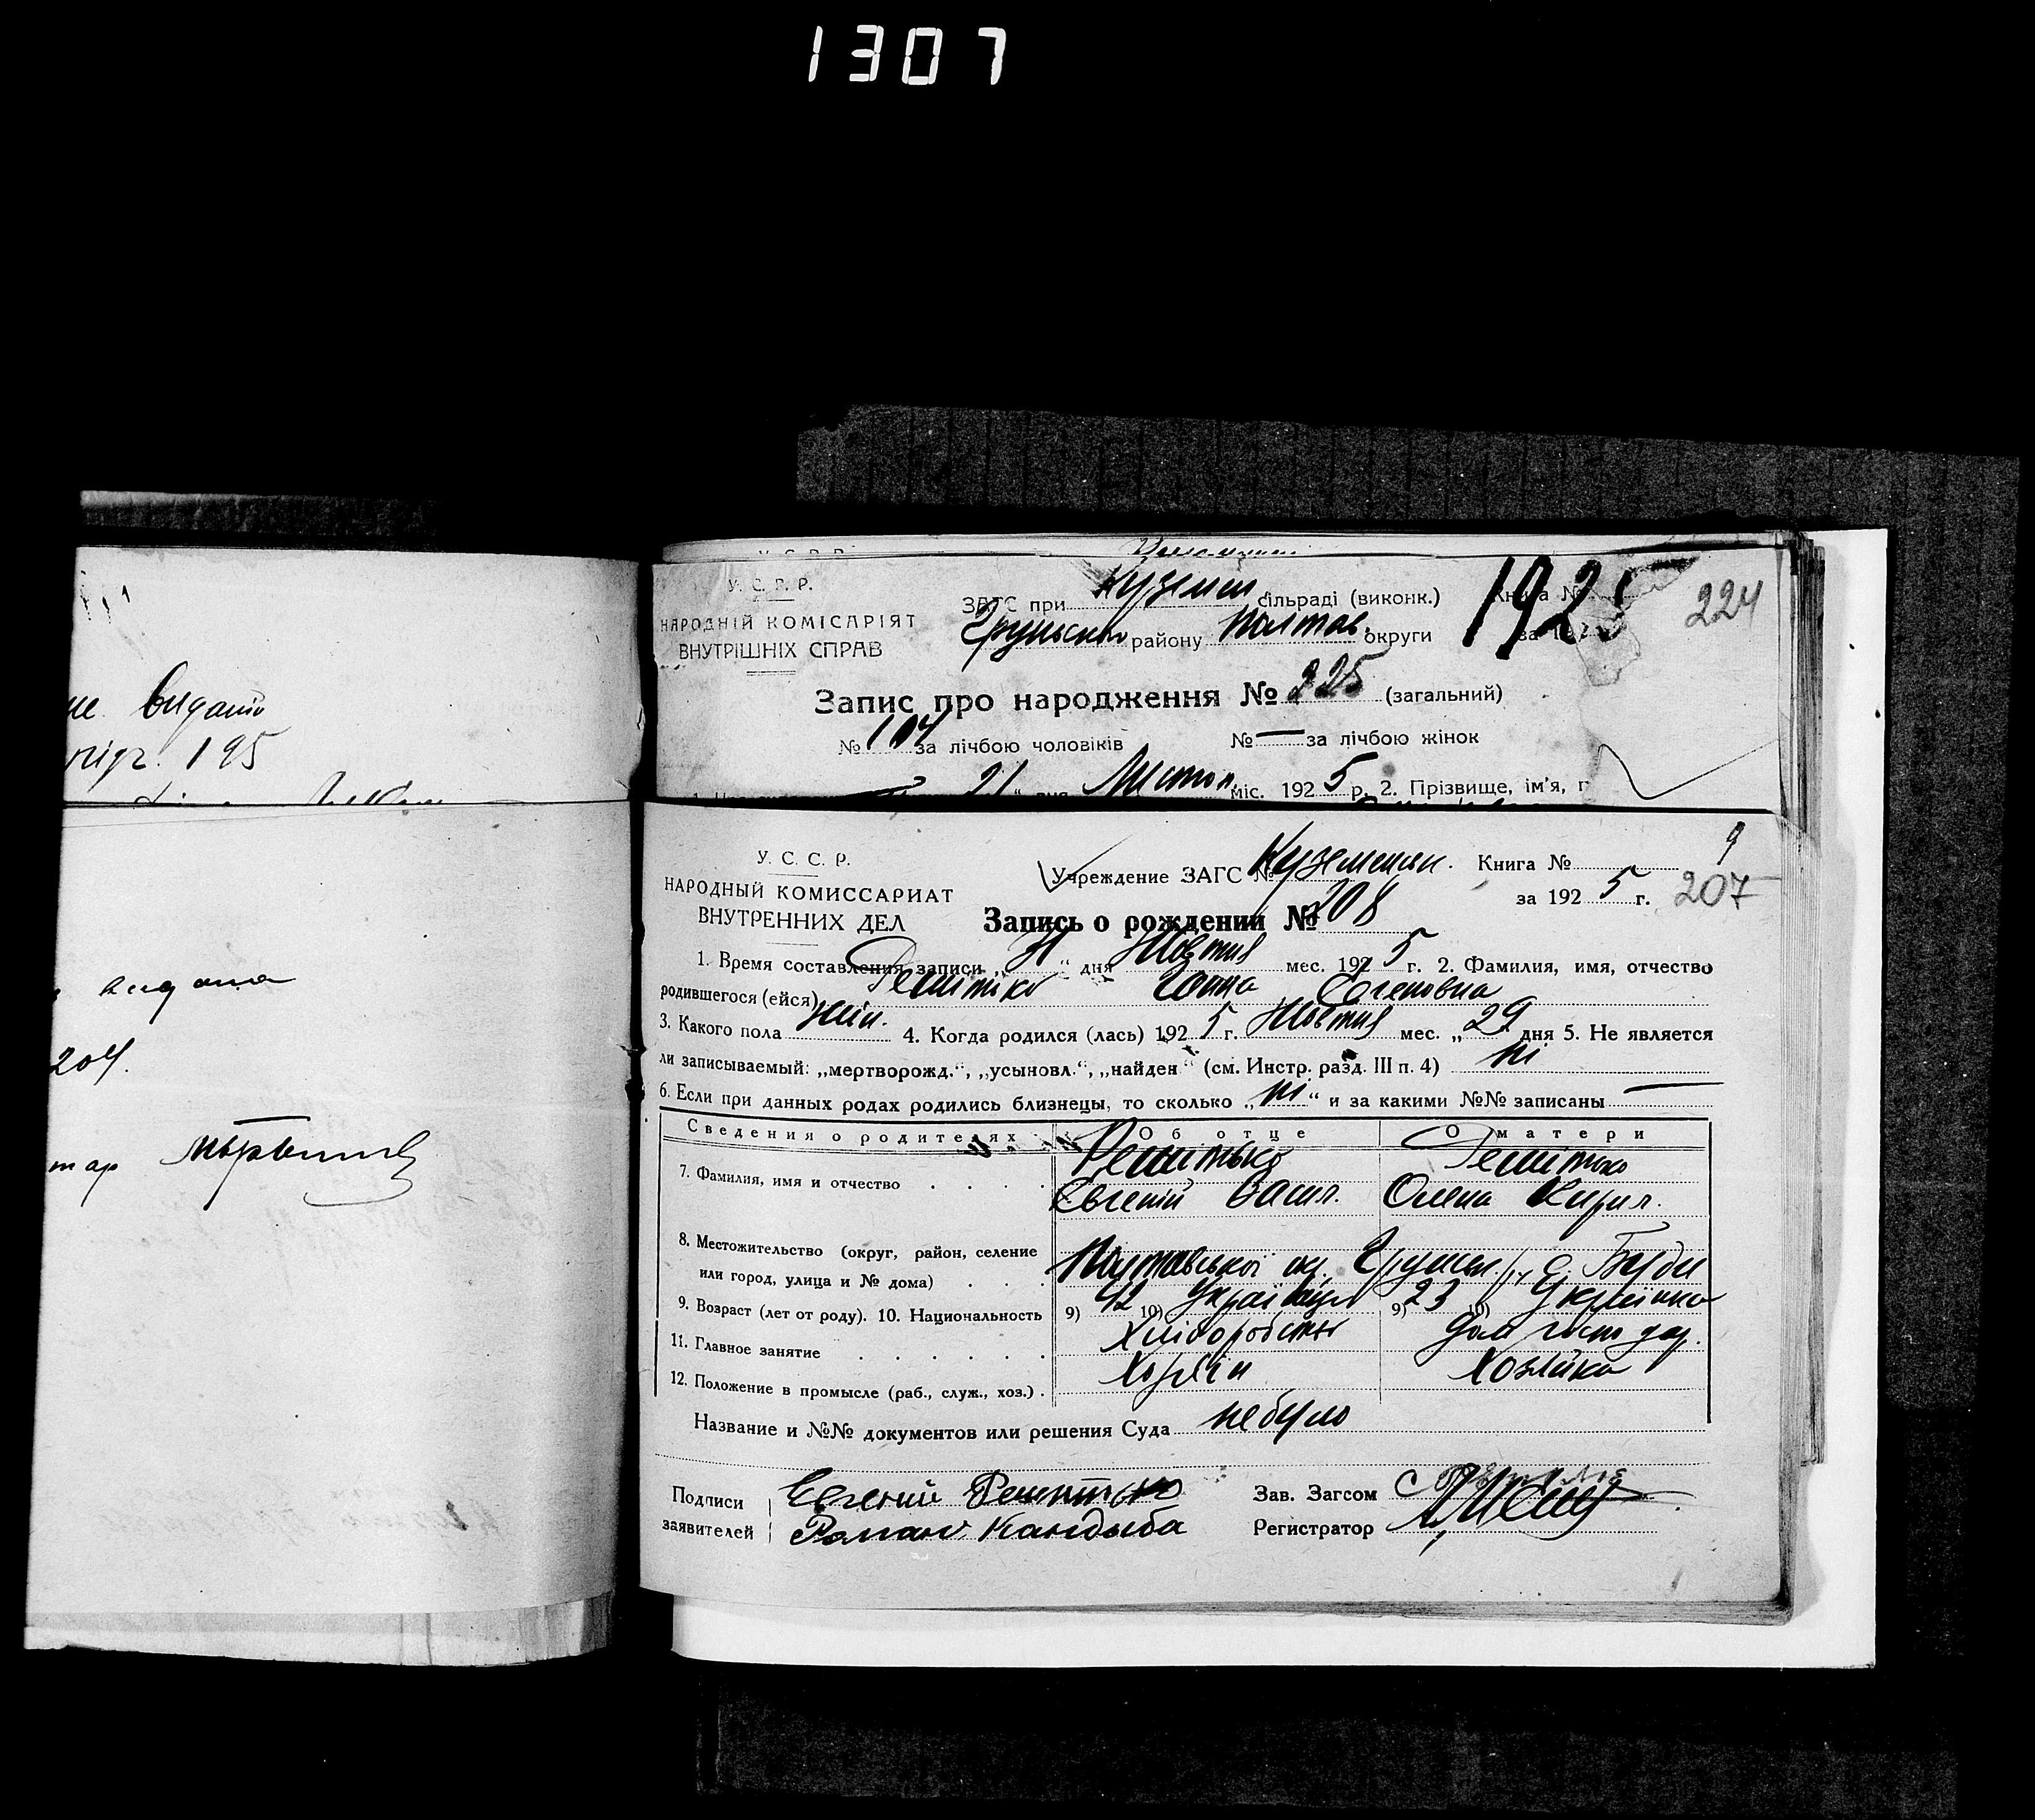 1307
не видано
195
У. С. Р. Р.
НАРОДНІЙ КОМІСАРІЯТ
ВНУТРІШНІХ СПРАВ
ЗАГС при Куземин. сільраді (виконк.) Книга №
Грунськ району Полтав. округи 1925 224
Запис про народження № 225 (загальний)
№ 104 за лічбою чоловіків № — за лічбою жінок
21 " дня Листоп. міс. 1925 р. 2. Прізвище, ім'я,
видана
204.
У. С. С. Р.
НАРОДНЫЙ КОМИССАРИАТ
ВНУТРЕННИХ ДЕЛ
Учреждение ЗАГС № Куземин. Книга № 9
за 1925 г. 207
Запись о рождении № 208
1. Время составления записи „ 31 “ дня Жовтня мес. 1925 г. 2. Фамилия, имя, отчество
родившегося (ейся) Решітько Ганна Євгеновна
3. Какого пола жін. 4. Когда родился (лась) 1925 г. Жовтня мес. „ 29 дня 5. Не является
ли записываемый: „мертворожд.“, „усыновл.“, „найден“ (см. Инстр. разд. III п. 4) ні
6. Если при данных родах родились близнецы, то сколько „ ні “ и за какими №№ записаны —
Сведения о родителях Об отце О матери
7. Фамилия, имя и отчество Решитько Решітько
Євгеній Васил. Олена Кирил.
8. Местожительство (округ, район, селение
или город, улица и № дома) Полтавської ок. Грунськ. р., с. Буди
9. Возраст (лет от роду). 10. Национальность 9) 42 10) Українця 9) 23 10) Українка
11. Главное занятие Хліборобство Дом господар.
12. Положение в промысле (раб., служ., хоз.) Хозяїн Хозяйка
Название и №№ документов или решения Суда не було
Подписи Евгений Решитько Зав. Загсом
заявителей Роман Кандыба Регистратор